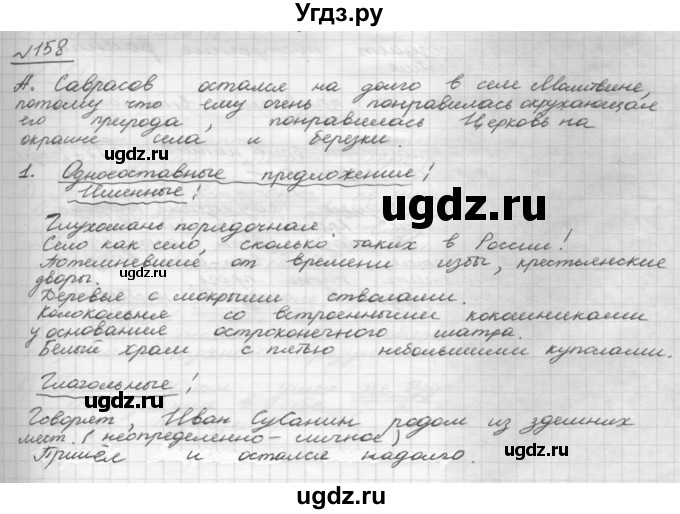 Угдз.ру
№158
А. Саврасов остался на долго в селе Молвитине,
потому что ему очень понравилась окружающая
его природа, понравилась Церковь на
окраине села и березки.
ugdz.ru
ugdz.ru
1. Односоставные предложение!
Именные!
ugdz.ru
Глухомань порядочная.
Село как село, сколько таких в России!
Потемневшие от времени избы, крестьянские
дворы.
ugdz.ru
ugdz.ru
Деревья с мокрыми стволами.
Колокольня со встроенными кокошниками
у основания остроконечного шатра.
Белый храм с пятью небольшими куполами.
ugdz.ru
Глагольные!
ugdz.ru
Говорят, Иван Сусанин родом из здешних
мест. (неопределенно-личное)
Пришёл и остался надолго.
ugdz.ru
ugdz.ru